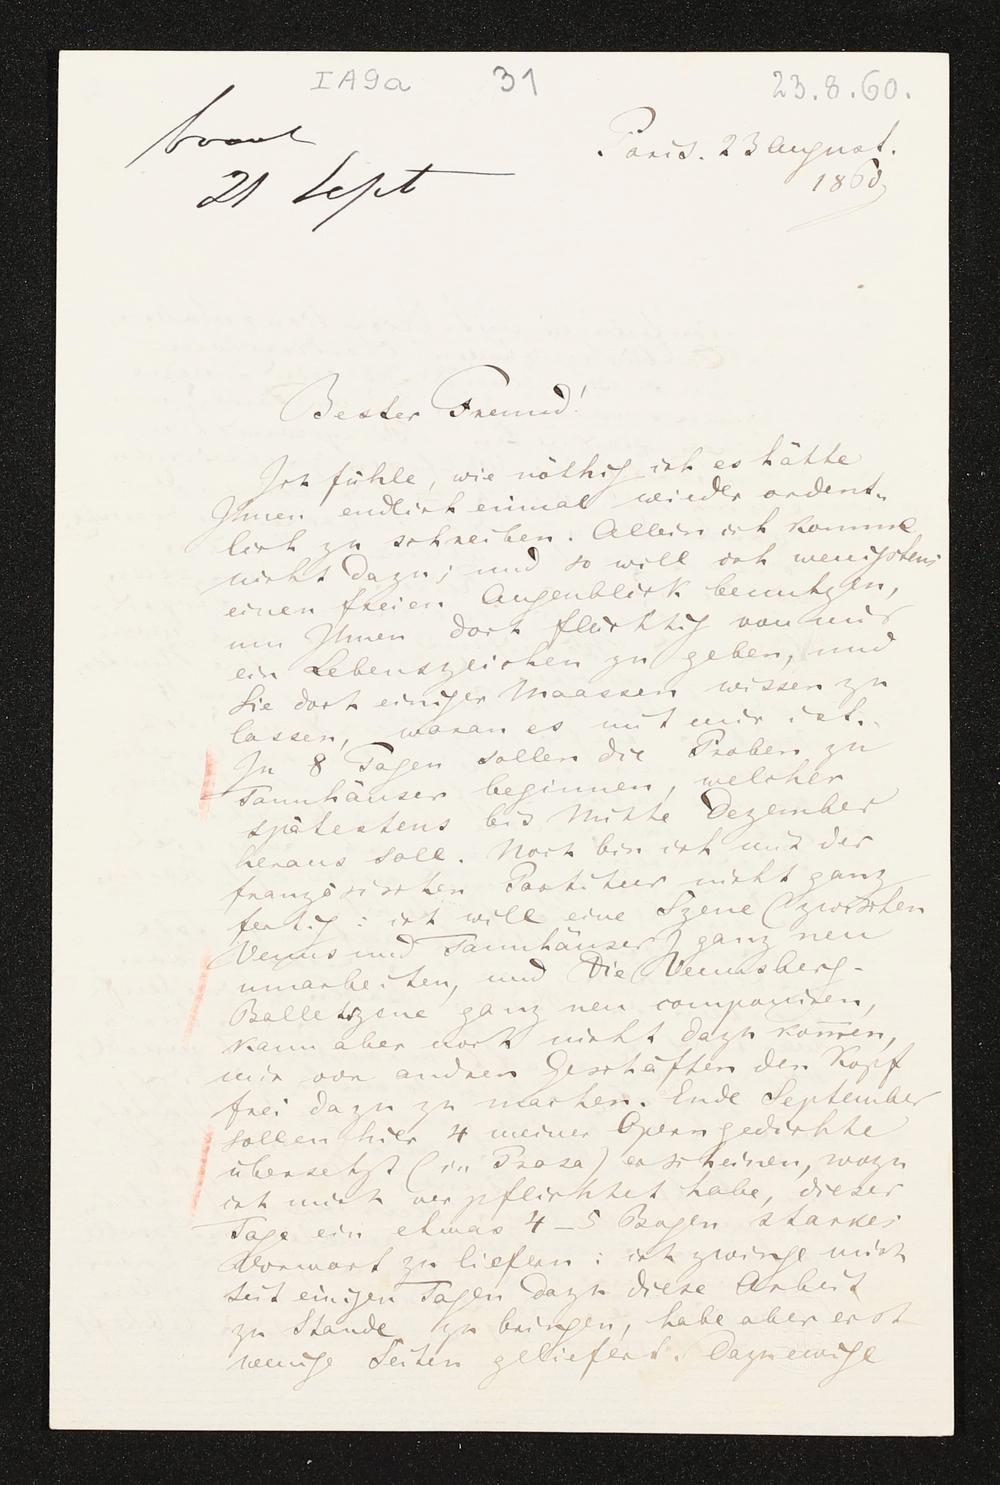 IA9a 31 23.8.60.
21 Sept
Paris. 23 August.
1860
Bester Freund!
Ich fühle, wie nöthig ich es hätte
Ihnen endlich einmal wieder ordent-
lich zu schreiben. Allein ich komme
nicht dazu; und so will ich wenigstens
einen freien Augenblick benutzen,
um Ihnen doch flüchtig von mir
ein Lebenszeichen zu geben, und
Sie doch einiger Maassen wissen zu
lassen, woran es mit mir ist.
In 8 Tagen sollen die Proben zu
Tannhäuser beginnen, welcher
spätestens bis Mitte Dezember
heraus soll. Noch bin ich mit der
französischen Partitur nicht ganz
fertig: ich will eine Szene (zwischen
Venus und Tannhäuser) ganz neu
umarbeiten, und die Venusberg-
Balletszene ganz neu componiren,
kann aber noch nicht dazu kom̅en,
mir von andren Geschäften den Kopf
frei dazu zu machen. Ende September
sollen hier 4 meiner Operngedichte
übersetzt (in Prosa) erscheinen, wozu
ich mich verpflichtet habe, dieser
Tage ein etwas 4–5 Bogen starkes
Vorwort zu liefern: ich zwinge mich
seit einigen Tagen dazu diese Arbeit
zu Stande zu bringen, habe aber erst
wenige Seiten geliefert. Dazu ewige